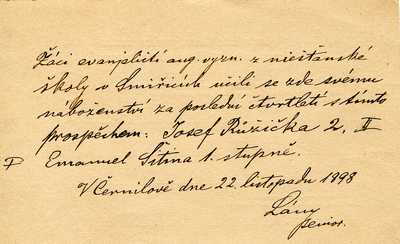 Žáci evanjeličtí aug. vyzn. z měšťanské
školy v Smiřicích učili se zde svému
náboženství za poslední čtvrtletí s tímto
prospěchem: Josef Růžička 2. II
P Emanuel Šitina 1. stupně.
V Černilově dne 22. listopadu 1898
Lány